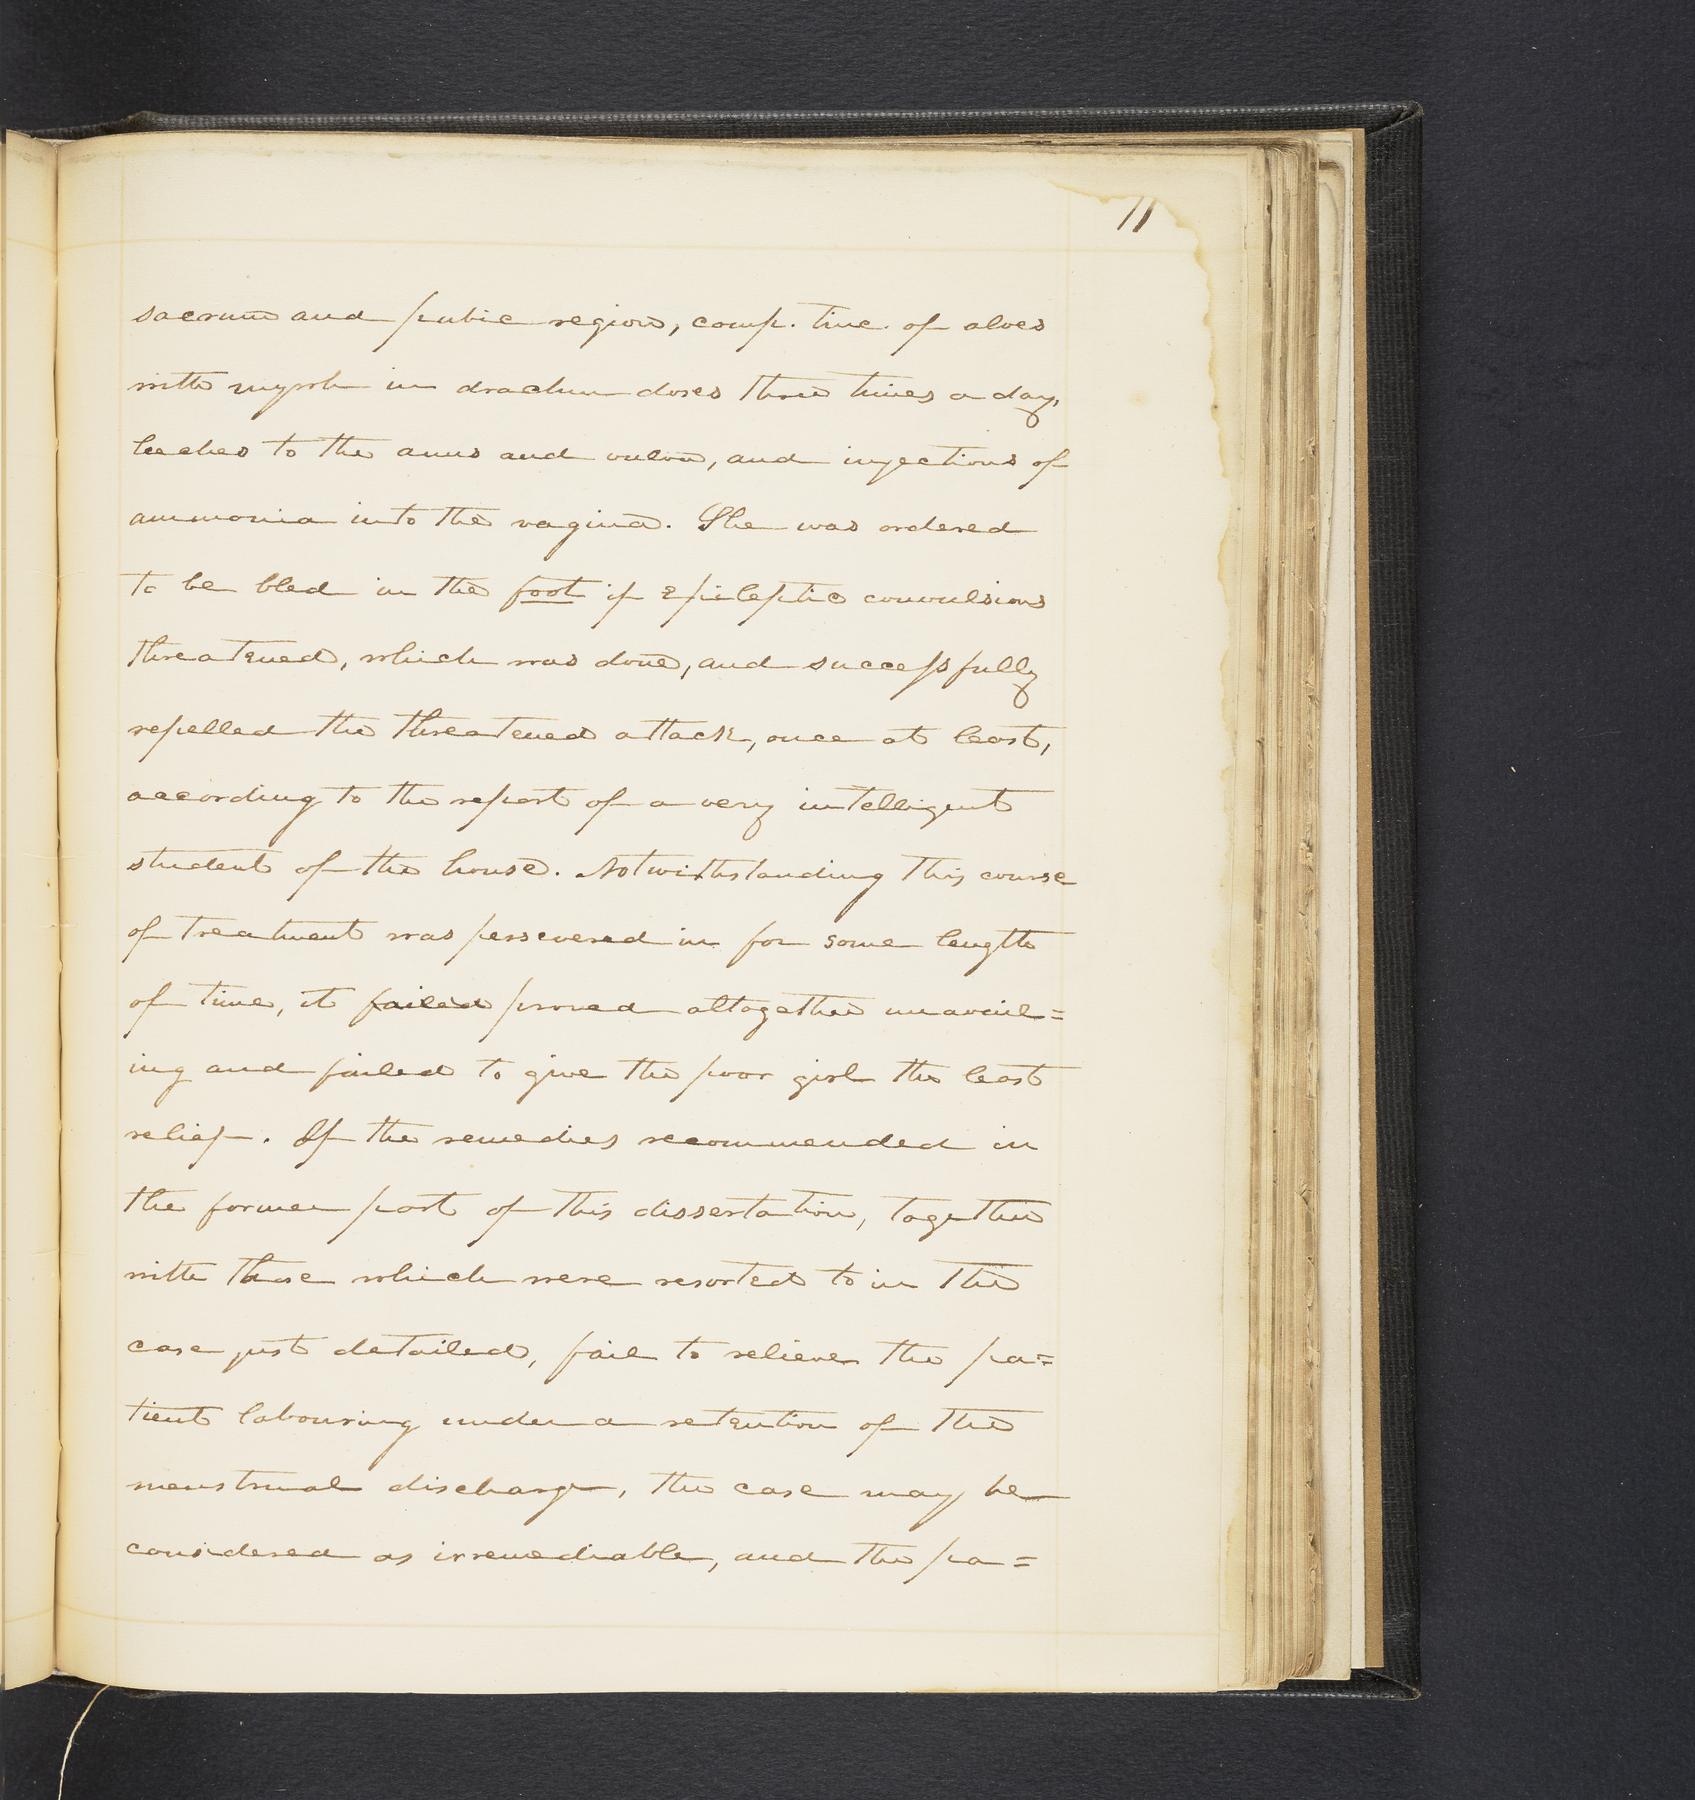 11
sacrum and pubic region, comp. tinc. of aloes
with myrrh in drachm doses three times a day,
leeches to the anus and vulva, and injections of
ammonia into the vagina. She was ordered
to be bled in the foot if epileptic convulsions
threatened, which was done, and successfully
repelled the threatened attack, once at least,
according to the report of a very intelligent
student of the house. Notwithstanding this course
of treatment was persevered in for some length
of time, it failed proved altogether unavail=
ing and failed to give the poor girl the least
relief. If the remedies recommended in
the former part of this dissertation, together
with those which were resorted to in the
case just detailed, fail to relieve the pa=
tient labouring under a retention of the
menstrual discharge, the case may be
considered as irremediable, and the pa=